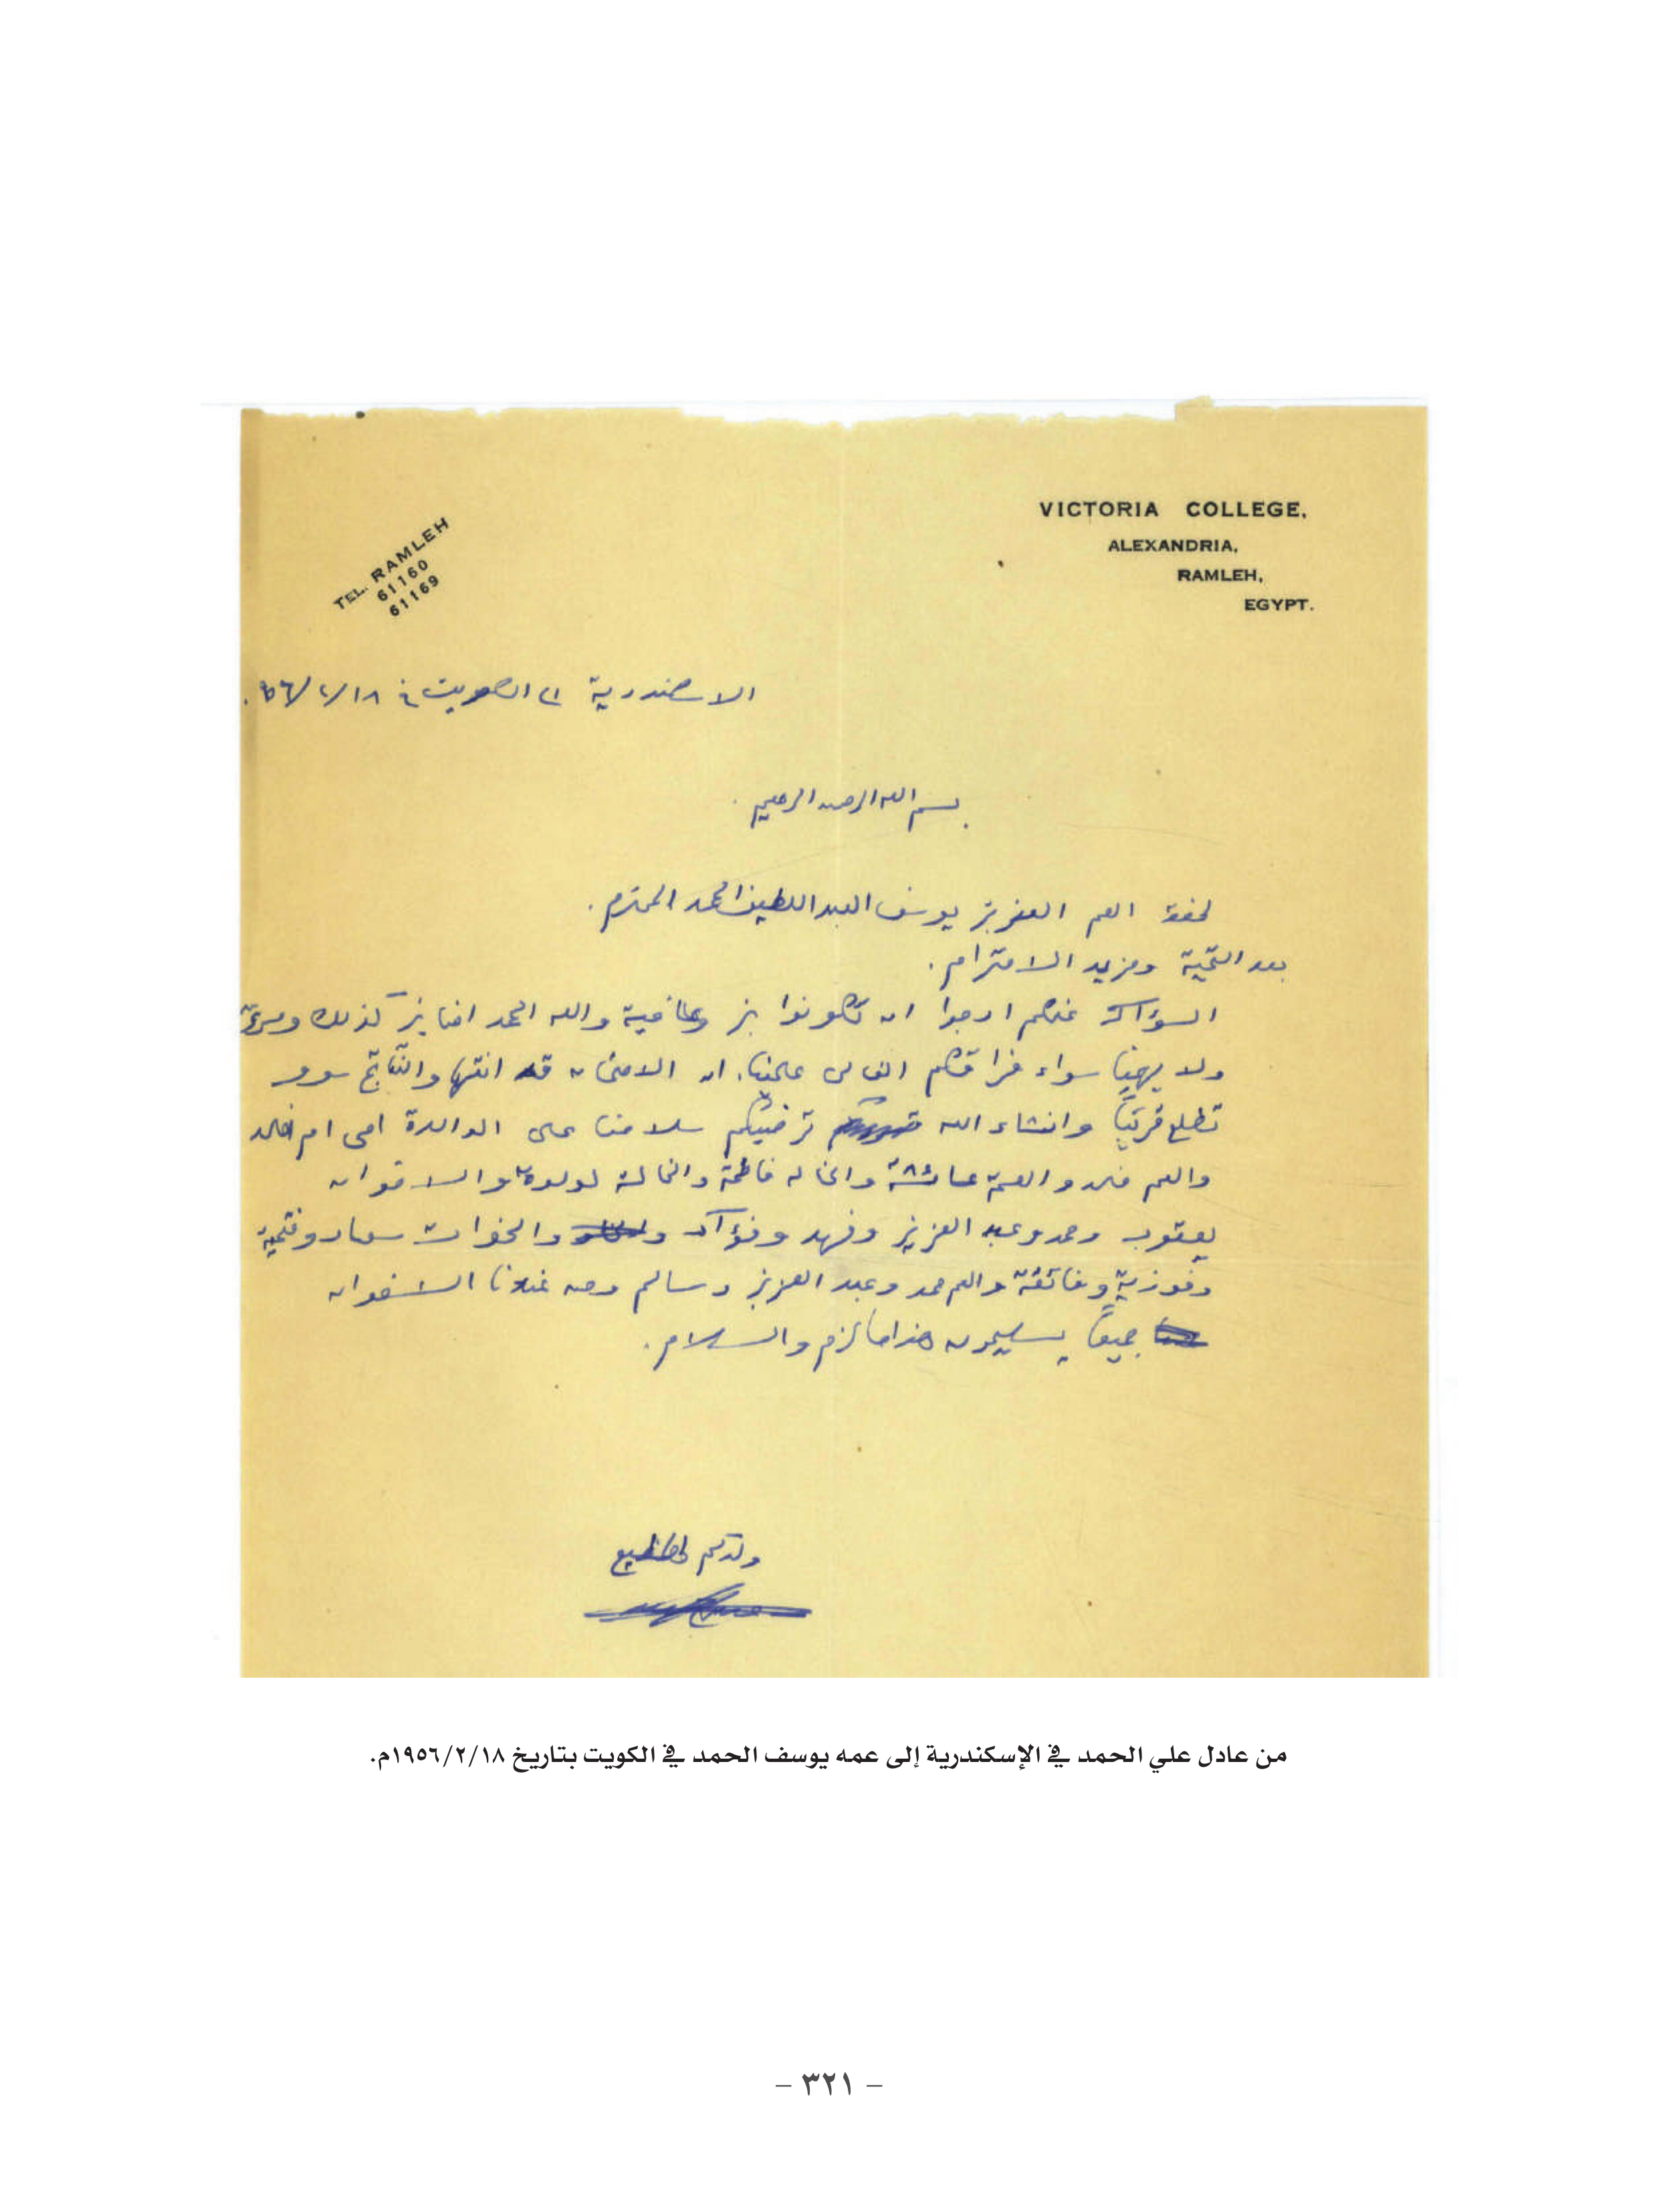 VICTORIA COLLEGE,
ALEXANDRIA,
RAMLEH,
EGYPT.
TEL. RAMLEH
61160
61169
الاسكندرية الى الكويت في ١٨/٢/٥٦.
بسم الله الرحمن الرحيم.
لحضرة العم العزيز يوسف العبد اللطيف الحمد المحترم.
بعد التحية ومزيد الاحترام.
السؤال عنكم ارجوا ان تكونوا بخير وعافية ولله الحمد اننا بخير كذلك
ولا يهمنا سواء فراقكم الغالي علينا. ان الامتحان قد انتها والنتائج سوف
تطلع قريباً وانشاء الله ترضيكم سلامنا على الوالدة امي ام خالد
والعم والعمة عائشة والخاله فاطمة والخالة لولوة والاخوان
يعقوب وحمد وعبد العزيز وفهد وفؤاد والخوات سعاد وفتحية
وفوزية وفائقة والعم حمد وعبد العزيز وسالم ومن عندنا الاخوان
جميعاً يسلمون هذا ما لزم والسلام.
ولدكم المطيع
من عادل علي الحمد في الإسكندرية إلى عمه يوسف الحمد في الكويت بتاريخ ١٩٥٦/٢/١٨م.
– ٣٢١ –